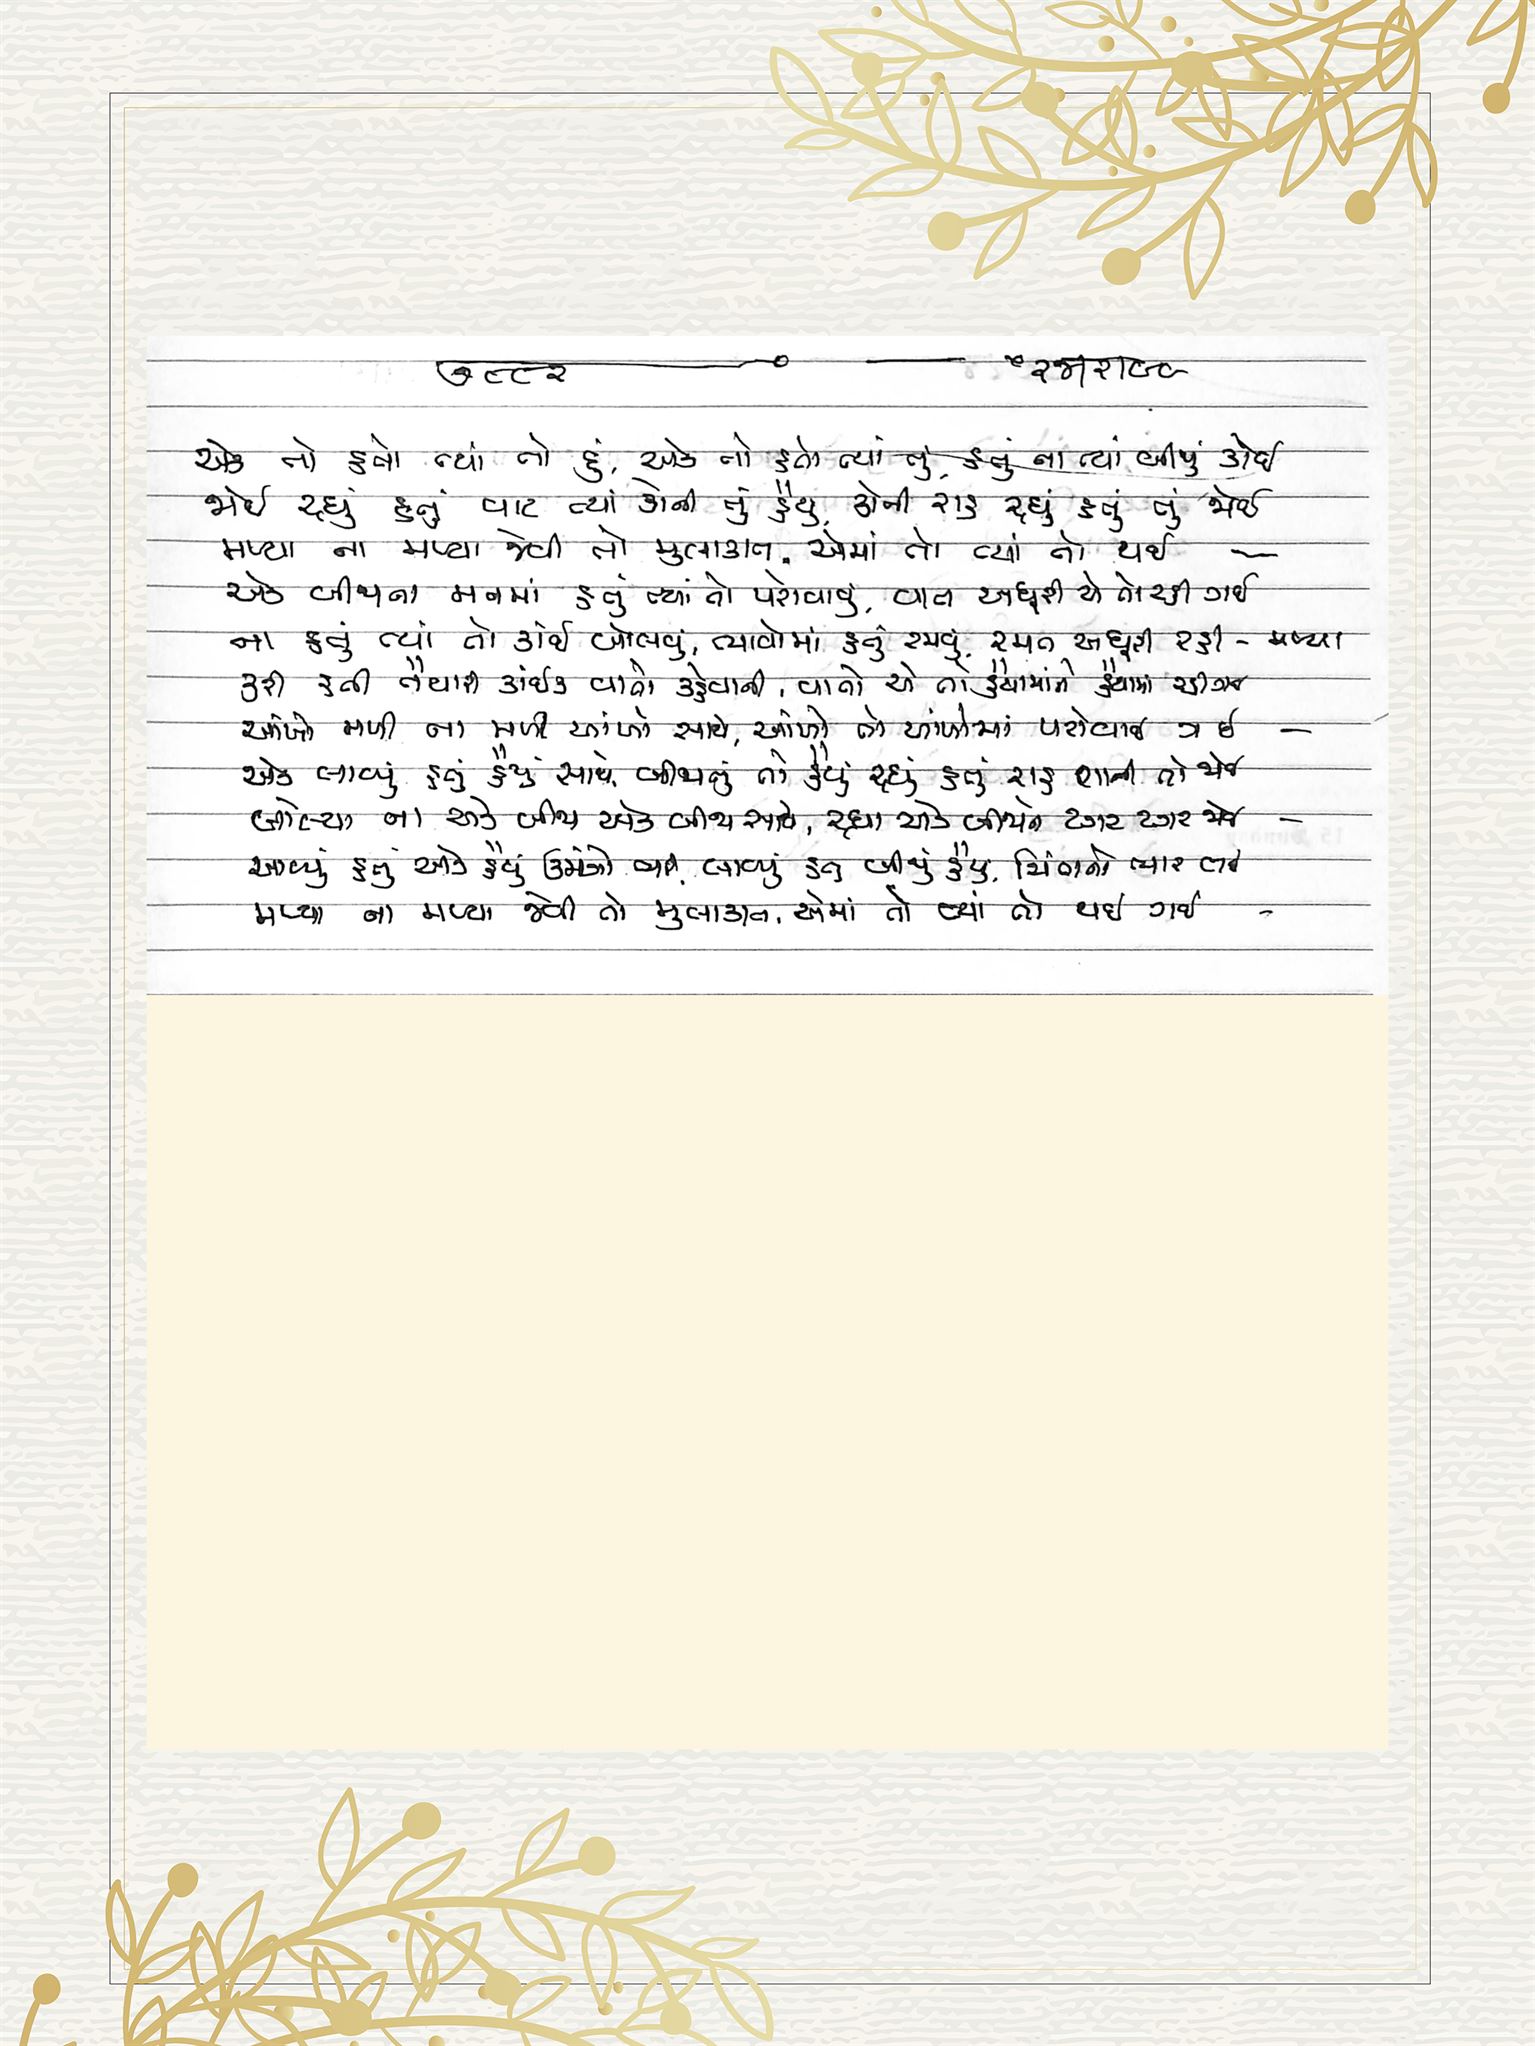 એક તો હતો ત્યાં તો હું, એક તો હતો ત્યાં તું, હતું ના ત્યાં બીજું કોઈ
જોઈ રહ્યું હતું વાટ ત્યાં કોની તું હૈયું, કોની રાહ રહ્યું હતું તું જોઈ
મળ્યા ના મળ્યા જેવી તો મુલાકાત, એમાં તો ત્યાં તો થઈ —
એક બીજાના મનમાં હતું ત્યાં તો પરોવાવું, વાત અધૂરી એ તો રહી ગઈ
ના હતું ત્યાં તો કાંઈ બોલવું, ભાવોમાં હતું રમવું, રમત અધૂરી રહી - મળ્યા
કરી હતી તૈયારી કાંઈક વાતો કહેવાની, વાતો એ તો હૈયામાંને હૈયામાં રહી ગઈ
આંખો મળી ના મળી આંખો સાથે, આંખો તો આંખોમાં પરોવાઈ ગઈ —
એક લાવ્યું હતું હૈયું સાથે, બીજાનું તો હૈયું રહ્યું હતું રાહ શાની તો જોઈ
બોલ્યા ના એક બીજા એક બીજા સાથે, રહ્યા એક બીજાને ટગર ટગર જોઈ —
આવ્યું હતું એક હૈયું ઉમંગો ભરી, લાવ્યું હતું બીજું હૈયું, ચિંતાનો ભાર લઈ
મળ્યા ના મળ્યા જેવી તો મુલાકાત, એમાં તો ત્યાં તો થઈ ગઈ -